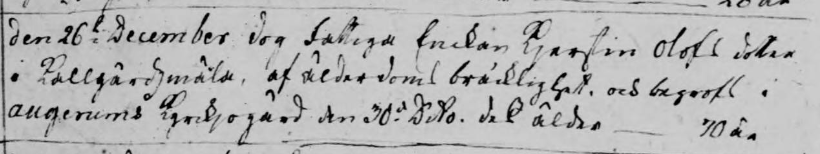 den 26t December dog Fattiga Enckan Kjerstin Olofs dotter
i Kallgårdzmåla, af ålderdoms bräcklighet, och begrofs i
augerums Kyrckjogård den 30d Dito. dess ålder — 70 år